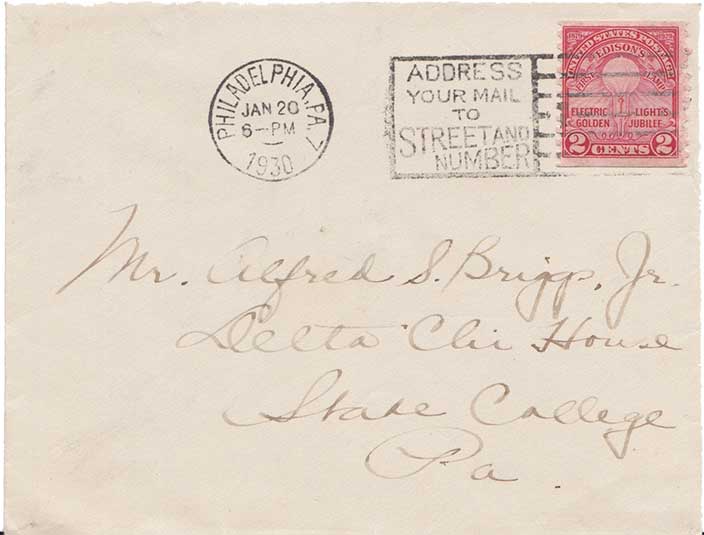 PHILADELPHIA, PA. 7
JAN 20
6-PM
1930
ADDRESS
YOUR MAIL
TO
STREET AND
NUMBER
UNITED STATES POSTAGE
EDISON'S
FIRST LAMP
ELECTRIC LIGHT'S
GOLDEN JUBILEE
2 CENTS 2
Mr. Alfred S. Briggs, Jr.
Delta Chi House
State College
Pa.